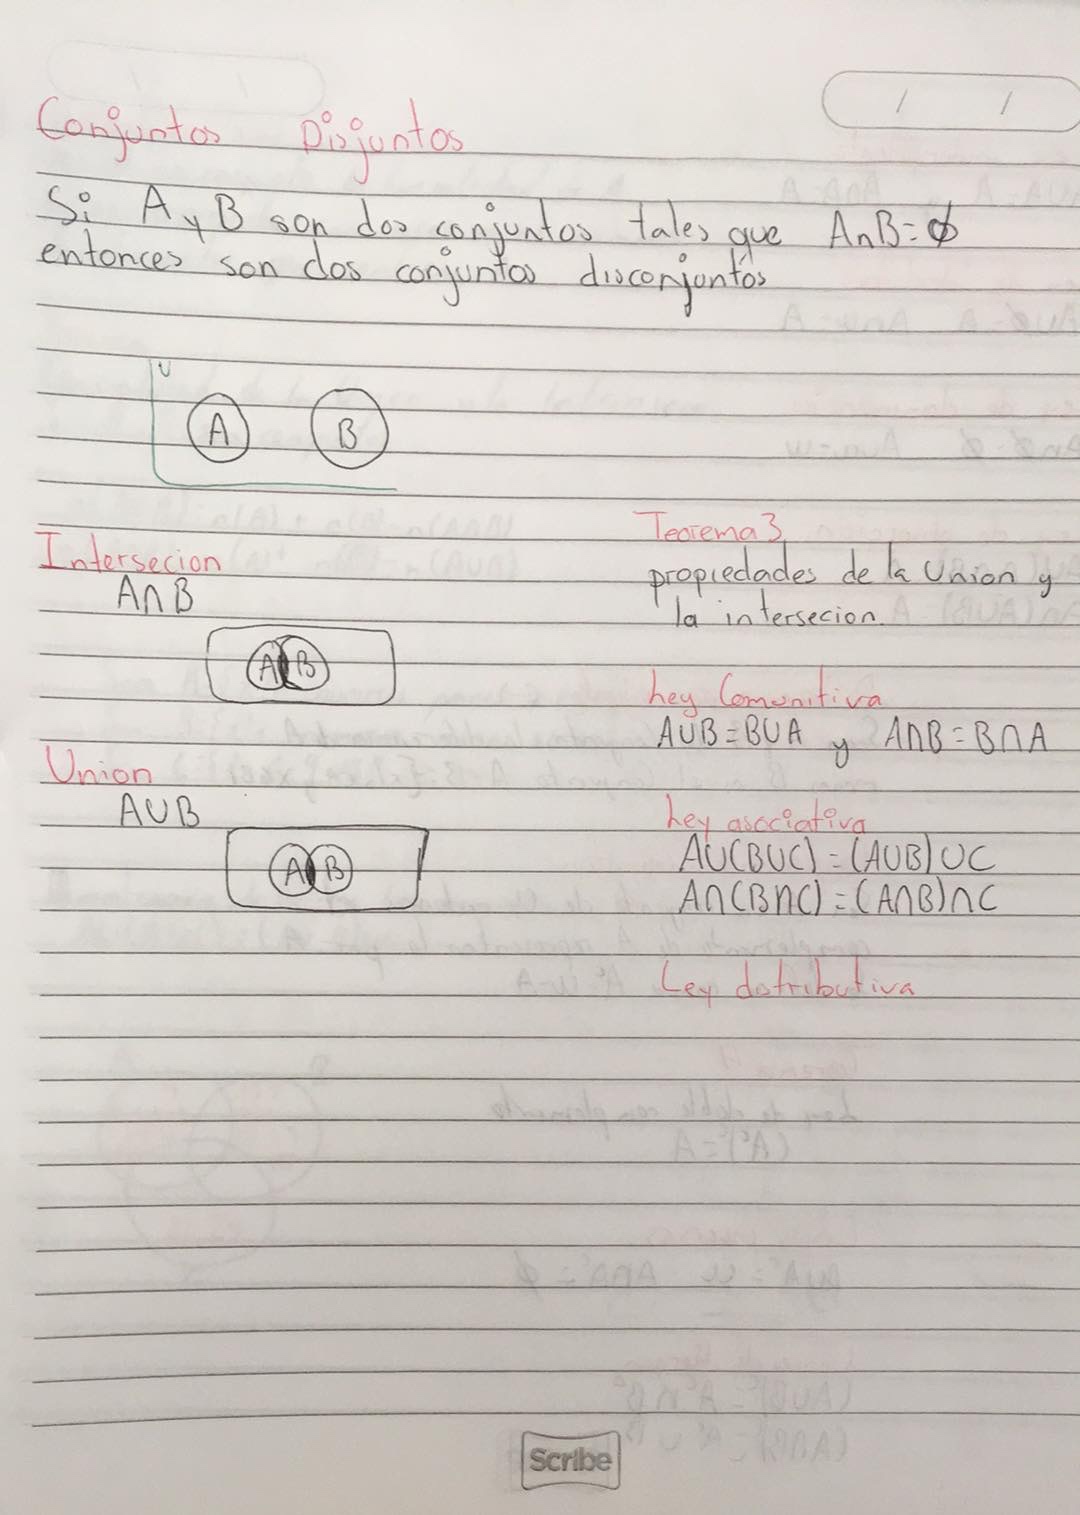 Conjuntos Disjuntos
Si A y B son dos conjuntos tales que A∩B=∅
entonces son dos conjuntos disconjuntos
U
A B
Intersecion
A∩B
A B
Union
A∪B
A B
Teorema 3
propiedades de la Union y
la intersecion.
Ley Comunitiva
A∪B=B∪A y A∩B=B∩A
Ley asociativa
A∪(B∪C)=(A∪B)∪C
A∩(B∩C)=(A∩B)∩C
Ley distributiva
Scribe